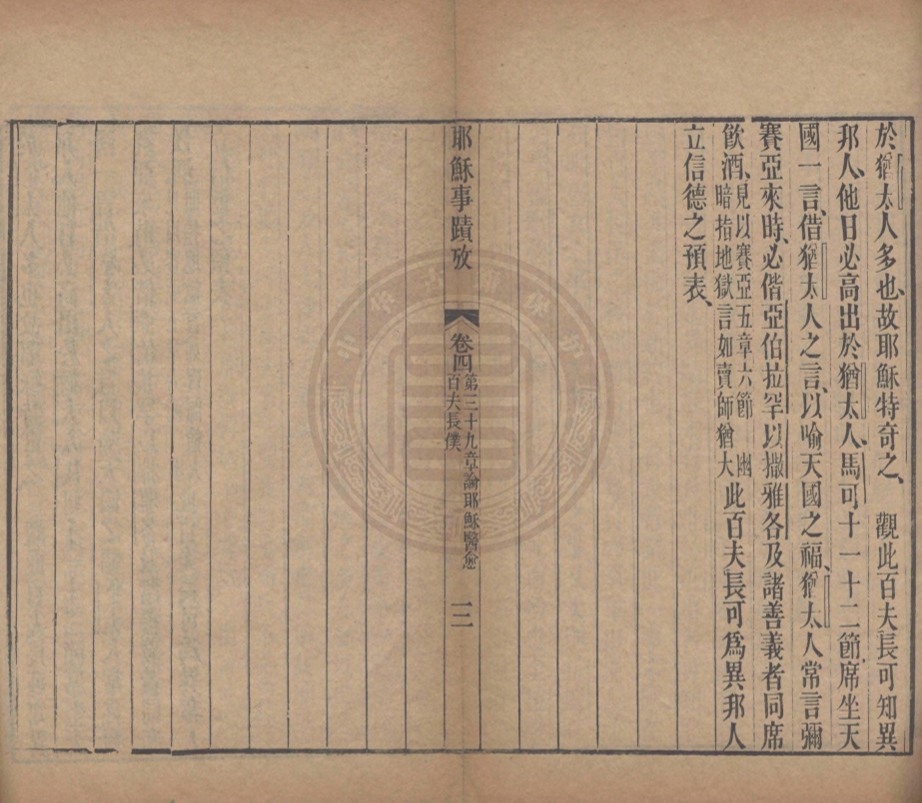 於猶太人多也、故耶穌特奇之、　觀此百夫長可知異
邦人、他日必高出於猶太人、馬可十一十二節、席坐天
國一言、借猶太人之言、以喻天國之福、猶太人常言彌
賽亞來時、必偕亞伯拉罕以撒雅各及諸善義者同席
飲酒、見以賽亞五章六節　幽暗指地獄言如賣師猶大此百夫長可爲異邦人
立信德之預表、
耶穌事蹟攷　卷四　第三十九章論耶穌醫愈百夫長僕　三